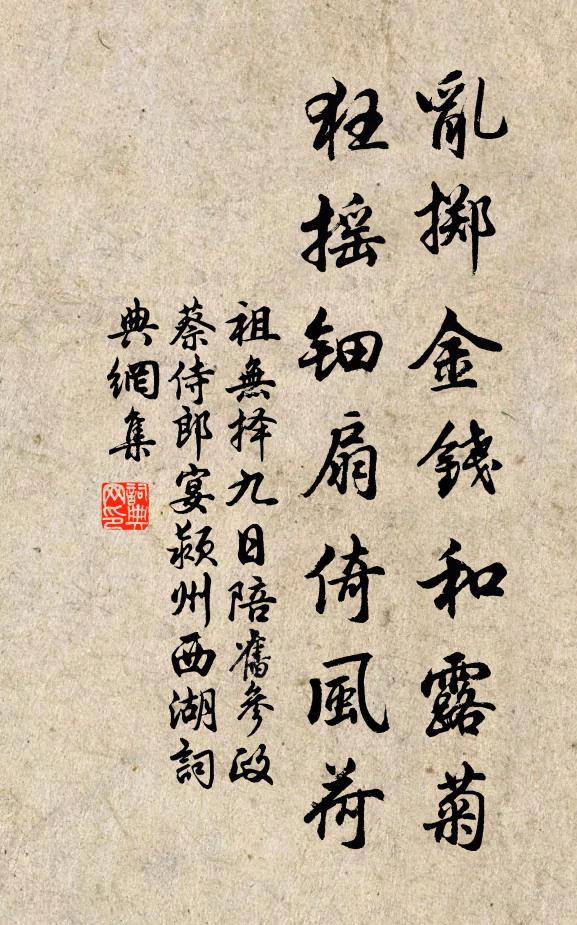 亂擲金錢和露菊
狂摇钿扇倚風荷
祖無择九日陪舊參政
蔡侍郎宴颍州西湖詞
典網集
詞典
网印